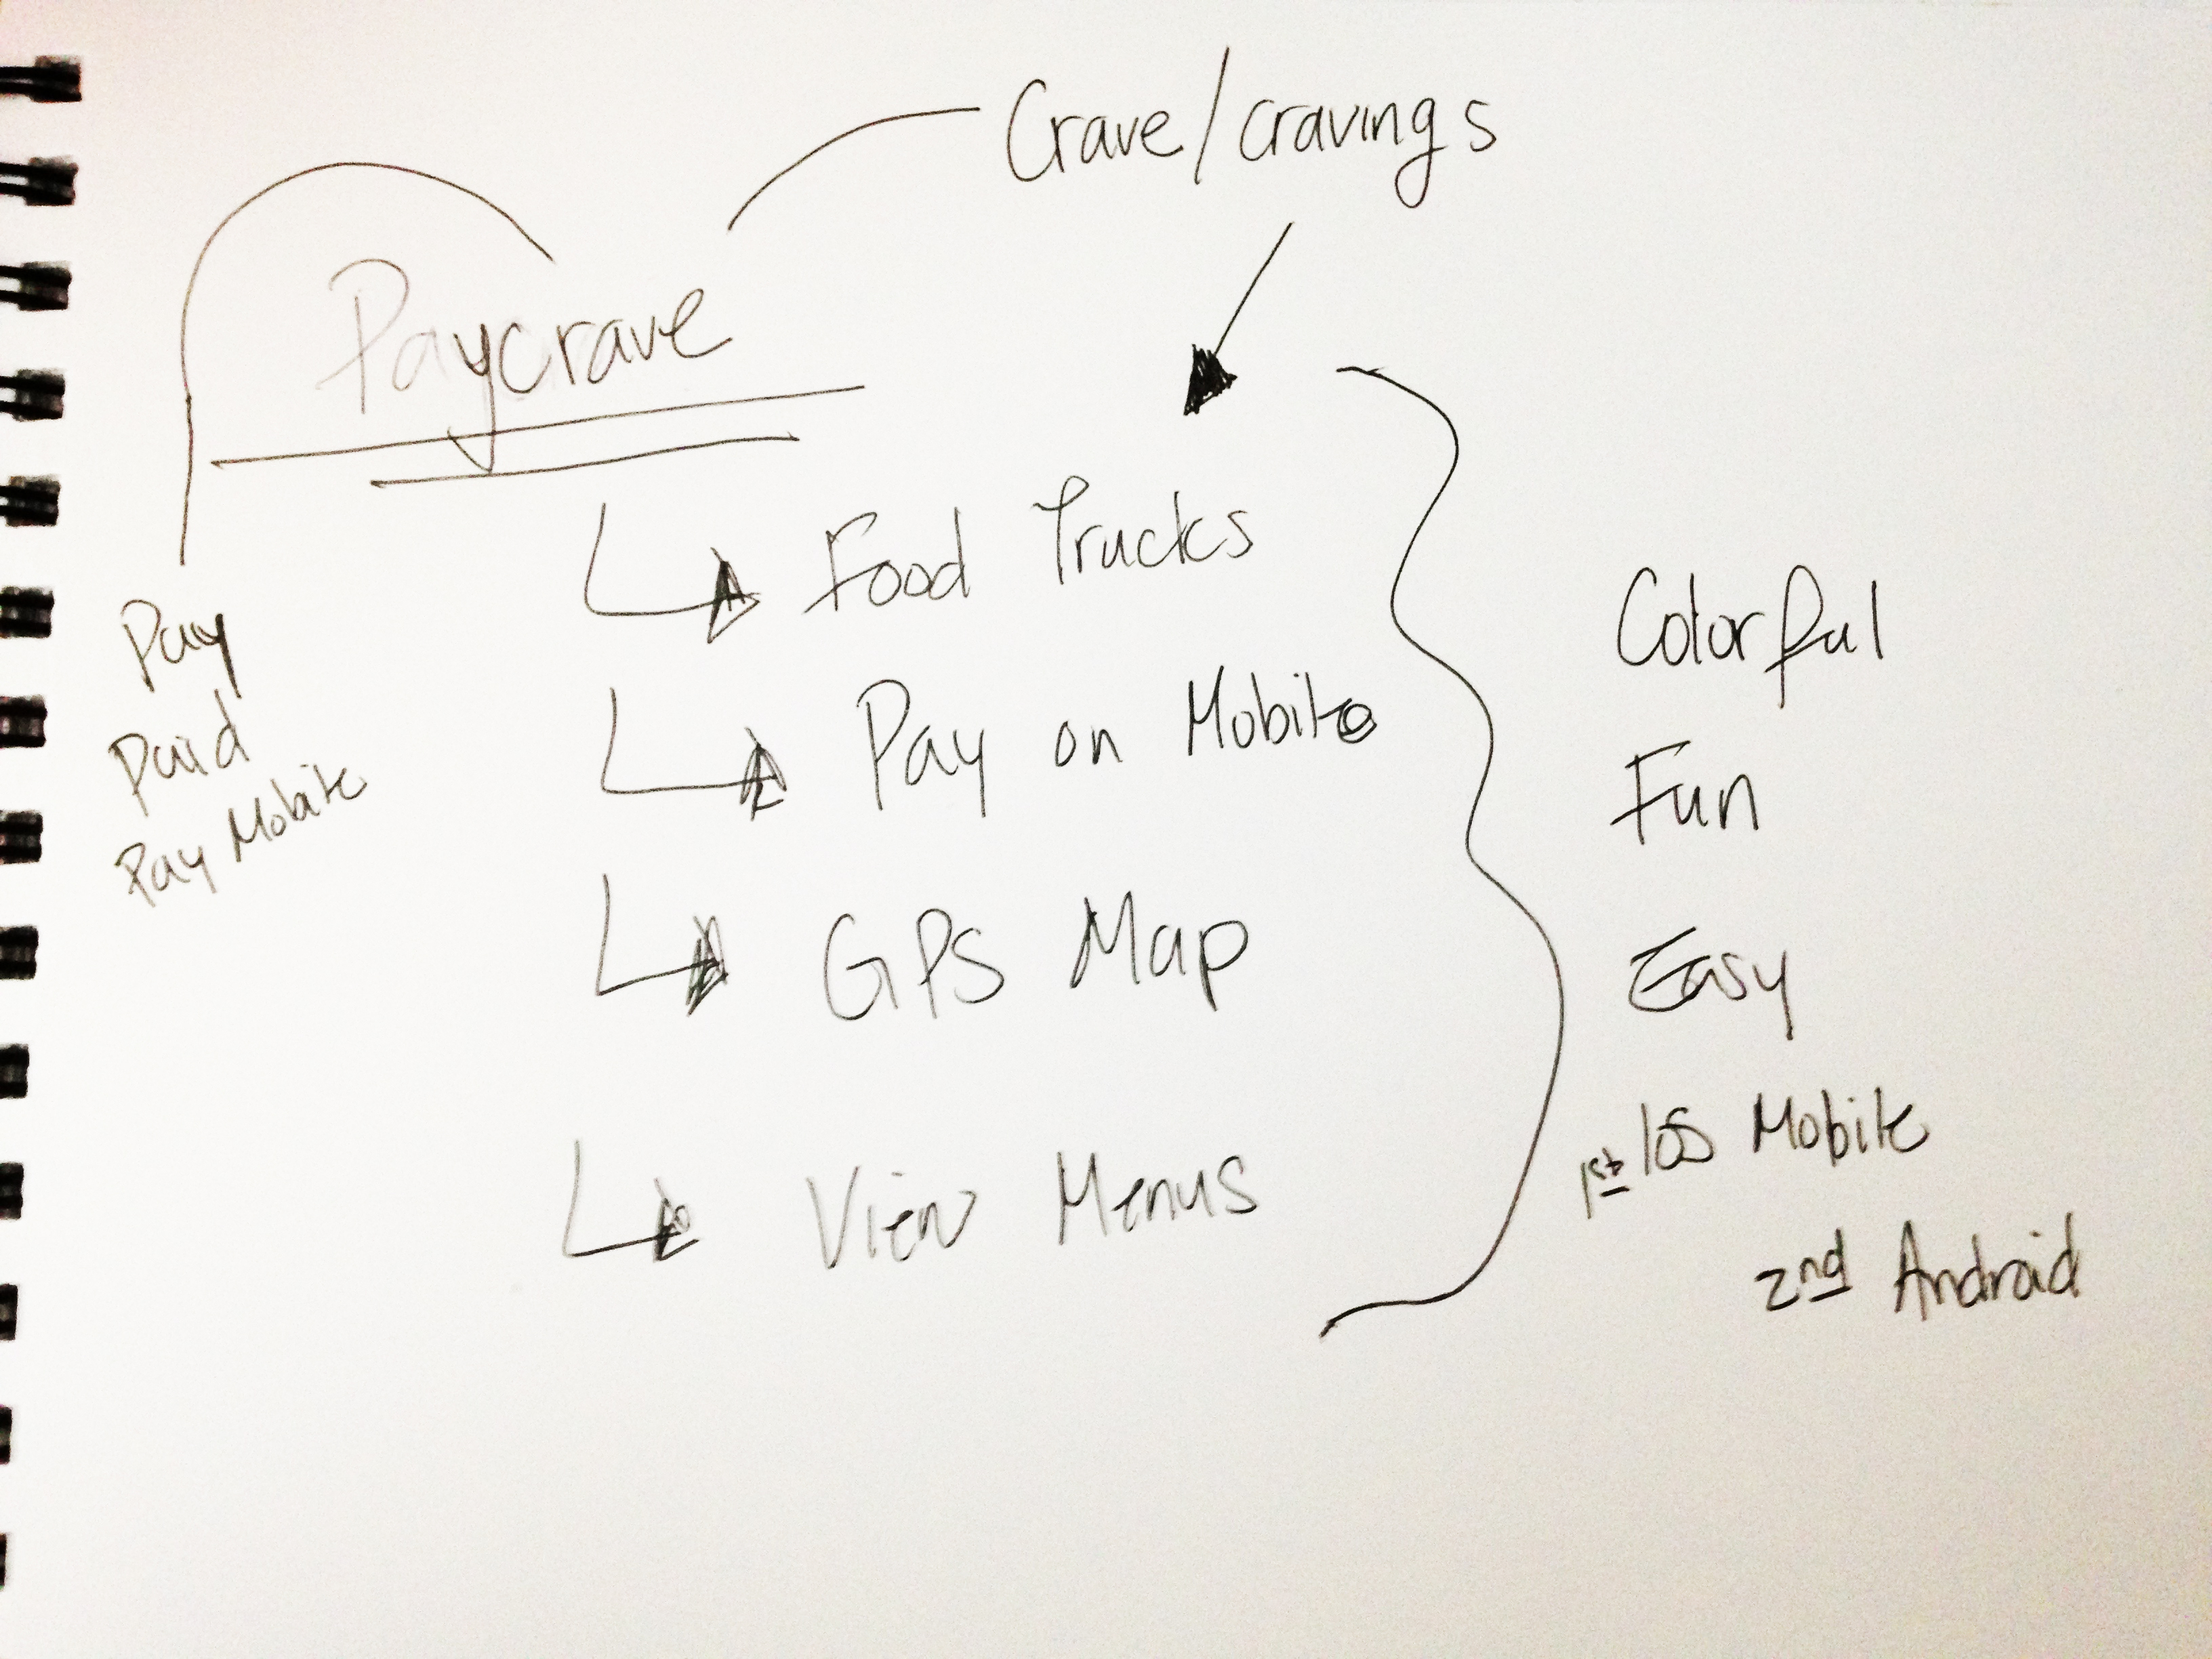 Crave/cravings
Paycrave
Pay
Paid
Pay Mobile
Food Trucks
Pay on Mobile
GPS Map
View Menus
Colorful
Fun
Easy
1st IOS Mobile
2nd Android